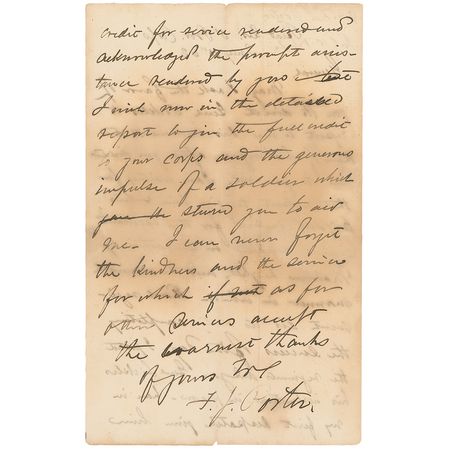 credit for service rendered and
acknowledged the prompt assis-
tance rendered by you
I wish now in the detailed
report to give the full credit
to your corps and the generous
impulse of a soldier which
stirred you to aid
me. I can never forget
the kindness and the service
for which if not as for
other services accept
the warmest thanks
of yours
F. J. Porter.